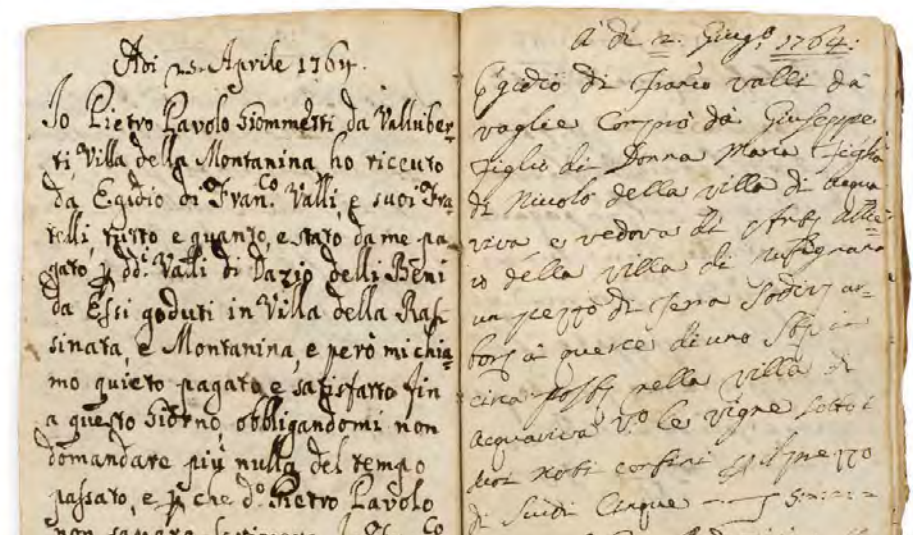 Adi 25. Aprile 1764.
Io Pietro Pavolo Giommetti da Valluber,
ti, Villa della Montanina ho riceuto
da Egidio di Fran.co Valli, e suoi Fra,
telli, tutto e quanto, e stato da me pa,
gato, p dd.i Valli di Dazio delli Beni
da Essi goduti in Villa della Ras,
sinata, e Montanina, e però mi chia,
mo quieto pagato, e satisfatto fin
a questo Giorno, obbligandomi non
domandare più nulla del tempo
passato, e p che d.o Pietro Pavolo
non
A dì 2. Giug.o 1764:
Egidio di Franco valli da
vaglie Comprò da Giuseppe
figlio di Donna Maria figlia
di Nicolò della villa di acqua
viva e vedova di
della villa di
un pezzo di terra Sodiva ar=
bora a querce di uno
circa nella villa di
acquaviva V.o le vigne sotto i
suoi noti confini p il prezzo
di Scudi Cinque